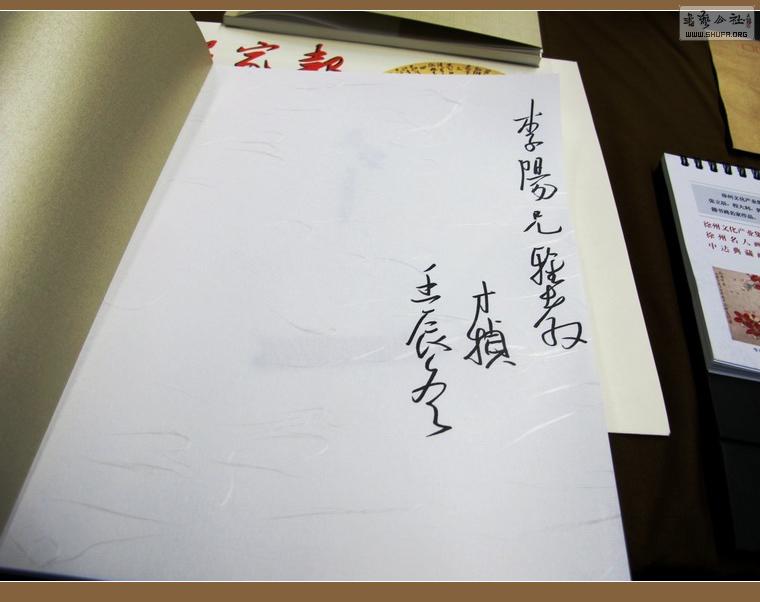 李陽兄雅教
才楨
壬辰冬
家报
徐州文化产业
徐州名人
中达典藏
书艺公社
WWW.SHUFA.ORG